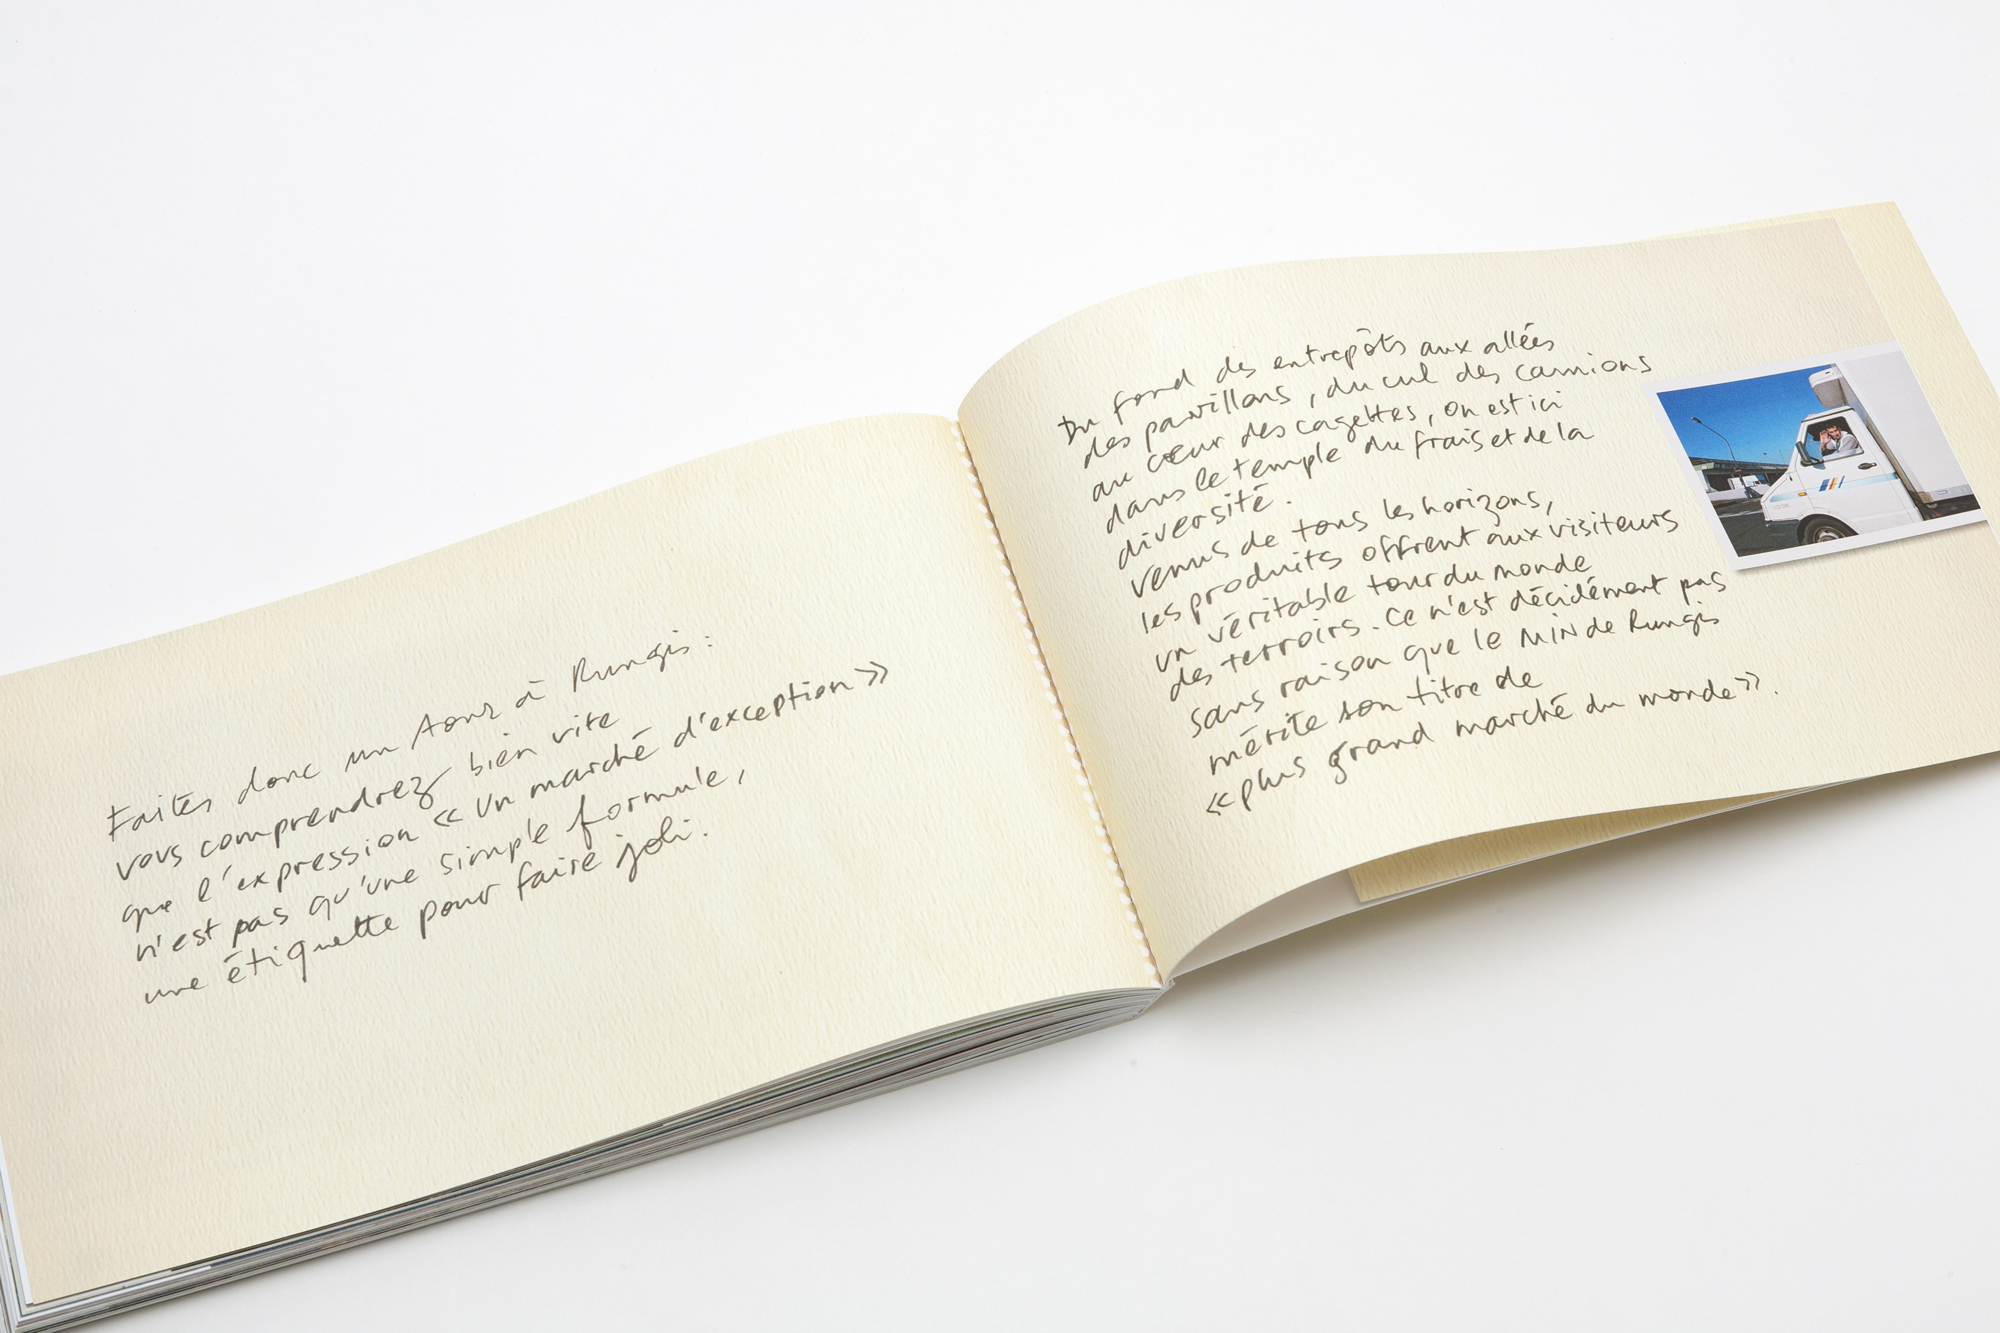 Faites donc un tour à Rungis :
vous comprendrez bien vite
que l'expression « un marché d'exception »
n'est pas qu'une simple formule,
une étiquette pour faire joli.
Du fond des entrepôts aux allées
des pavillons, du cul des camions
au cœur des cagettes, on est ici
dans le temple du frais et de la
diversité.
Venus de tous les horizons,
les produits offrent aux visiteurs
un véritable tour du monde
des terroirs. Ce n'est décidément pas
sans raison que le MIN de Rungis
mérite son titre de
« plus grand marché du monde ».